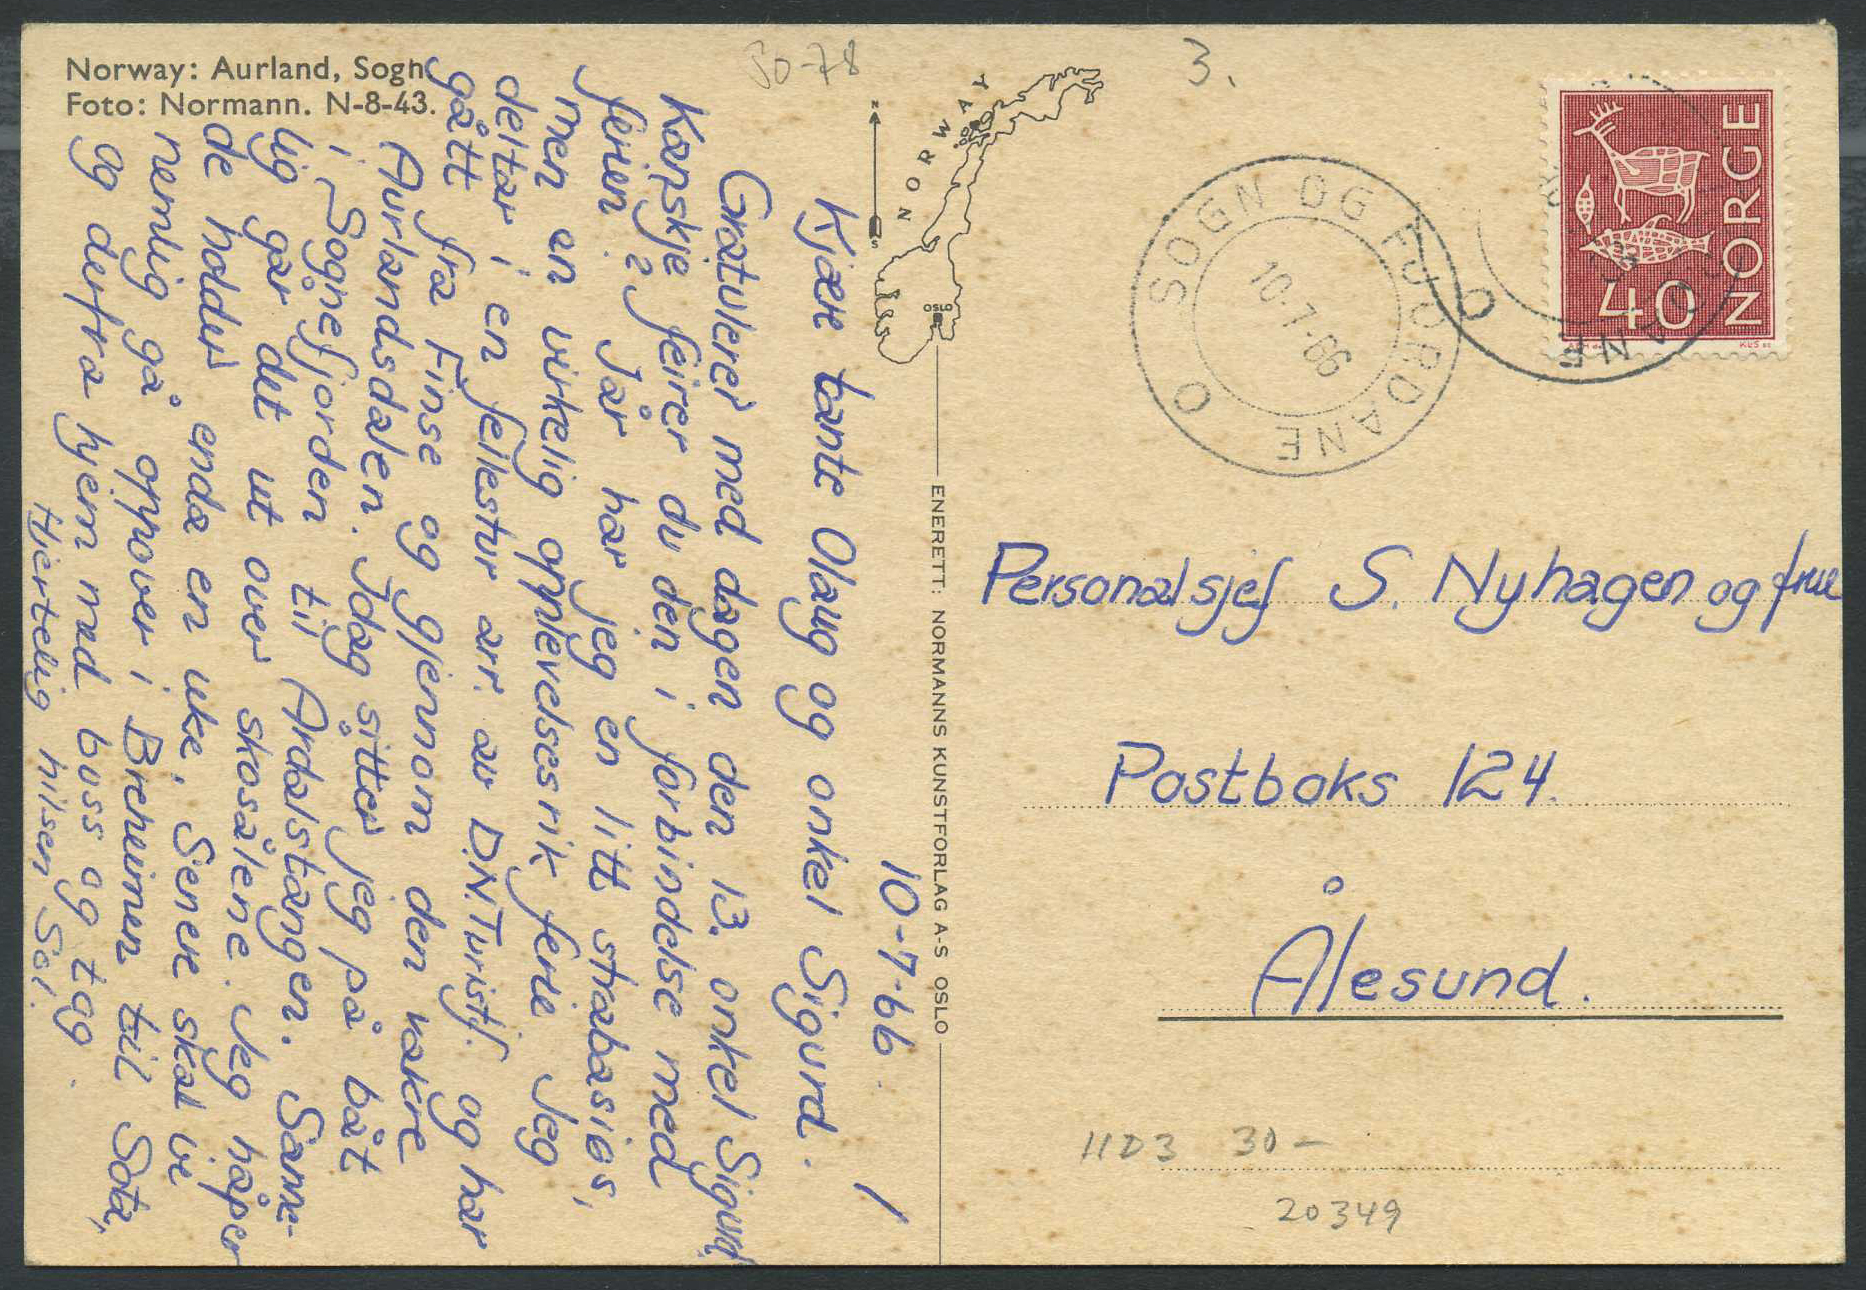 Norway: Aurland, Sogn
Foto: Normann. N-8-43.
50-78
3.
NORWAY
N
S
BODØ
OSLO
NORGE
40
SOGN OG FJORDANE
10-7-66
ENERETT: NORMANNS KUNSTFORLAG A-S OSLO
10-7-66.
Kjære tante Olaug og onkel Sigurd.
Gratulerer med dagen den 13. onkel Sigurd
Kanskje feirer du den i forbindelse med
ferien? I år har jeg en litt strabasiøs,
men en virkelig opplevelsesrik ferie. Jeg
deltar i en fellestur arr. av D.N.Turistf. og har
gått fra Finse og gjennom den vakre
Aurlandsdalen. Idag sitter jeg på båt
i Sognefjorden til Årdalstangen. Sanne-
lig går det ut over skosålene. Jeg håper
de holder enda en uke, Senere skal vi
nemlig gå oppover i Breheimen til Sota,
og derfra hjem med buss og tog.
Hjertelig hilsen Sol.
Personalsjef S. Nyhagen og frue
Postboks 124.
Ålesund.
11D3 30-
20349